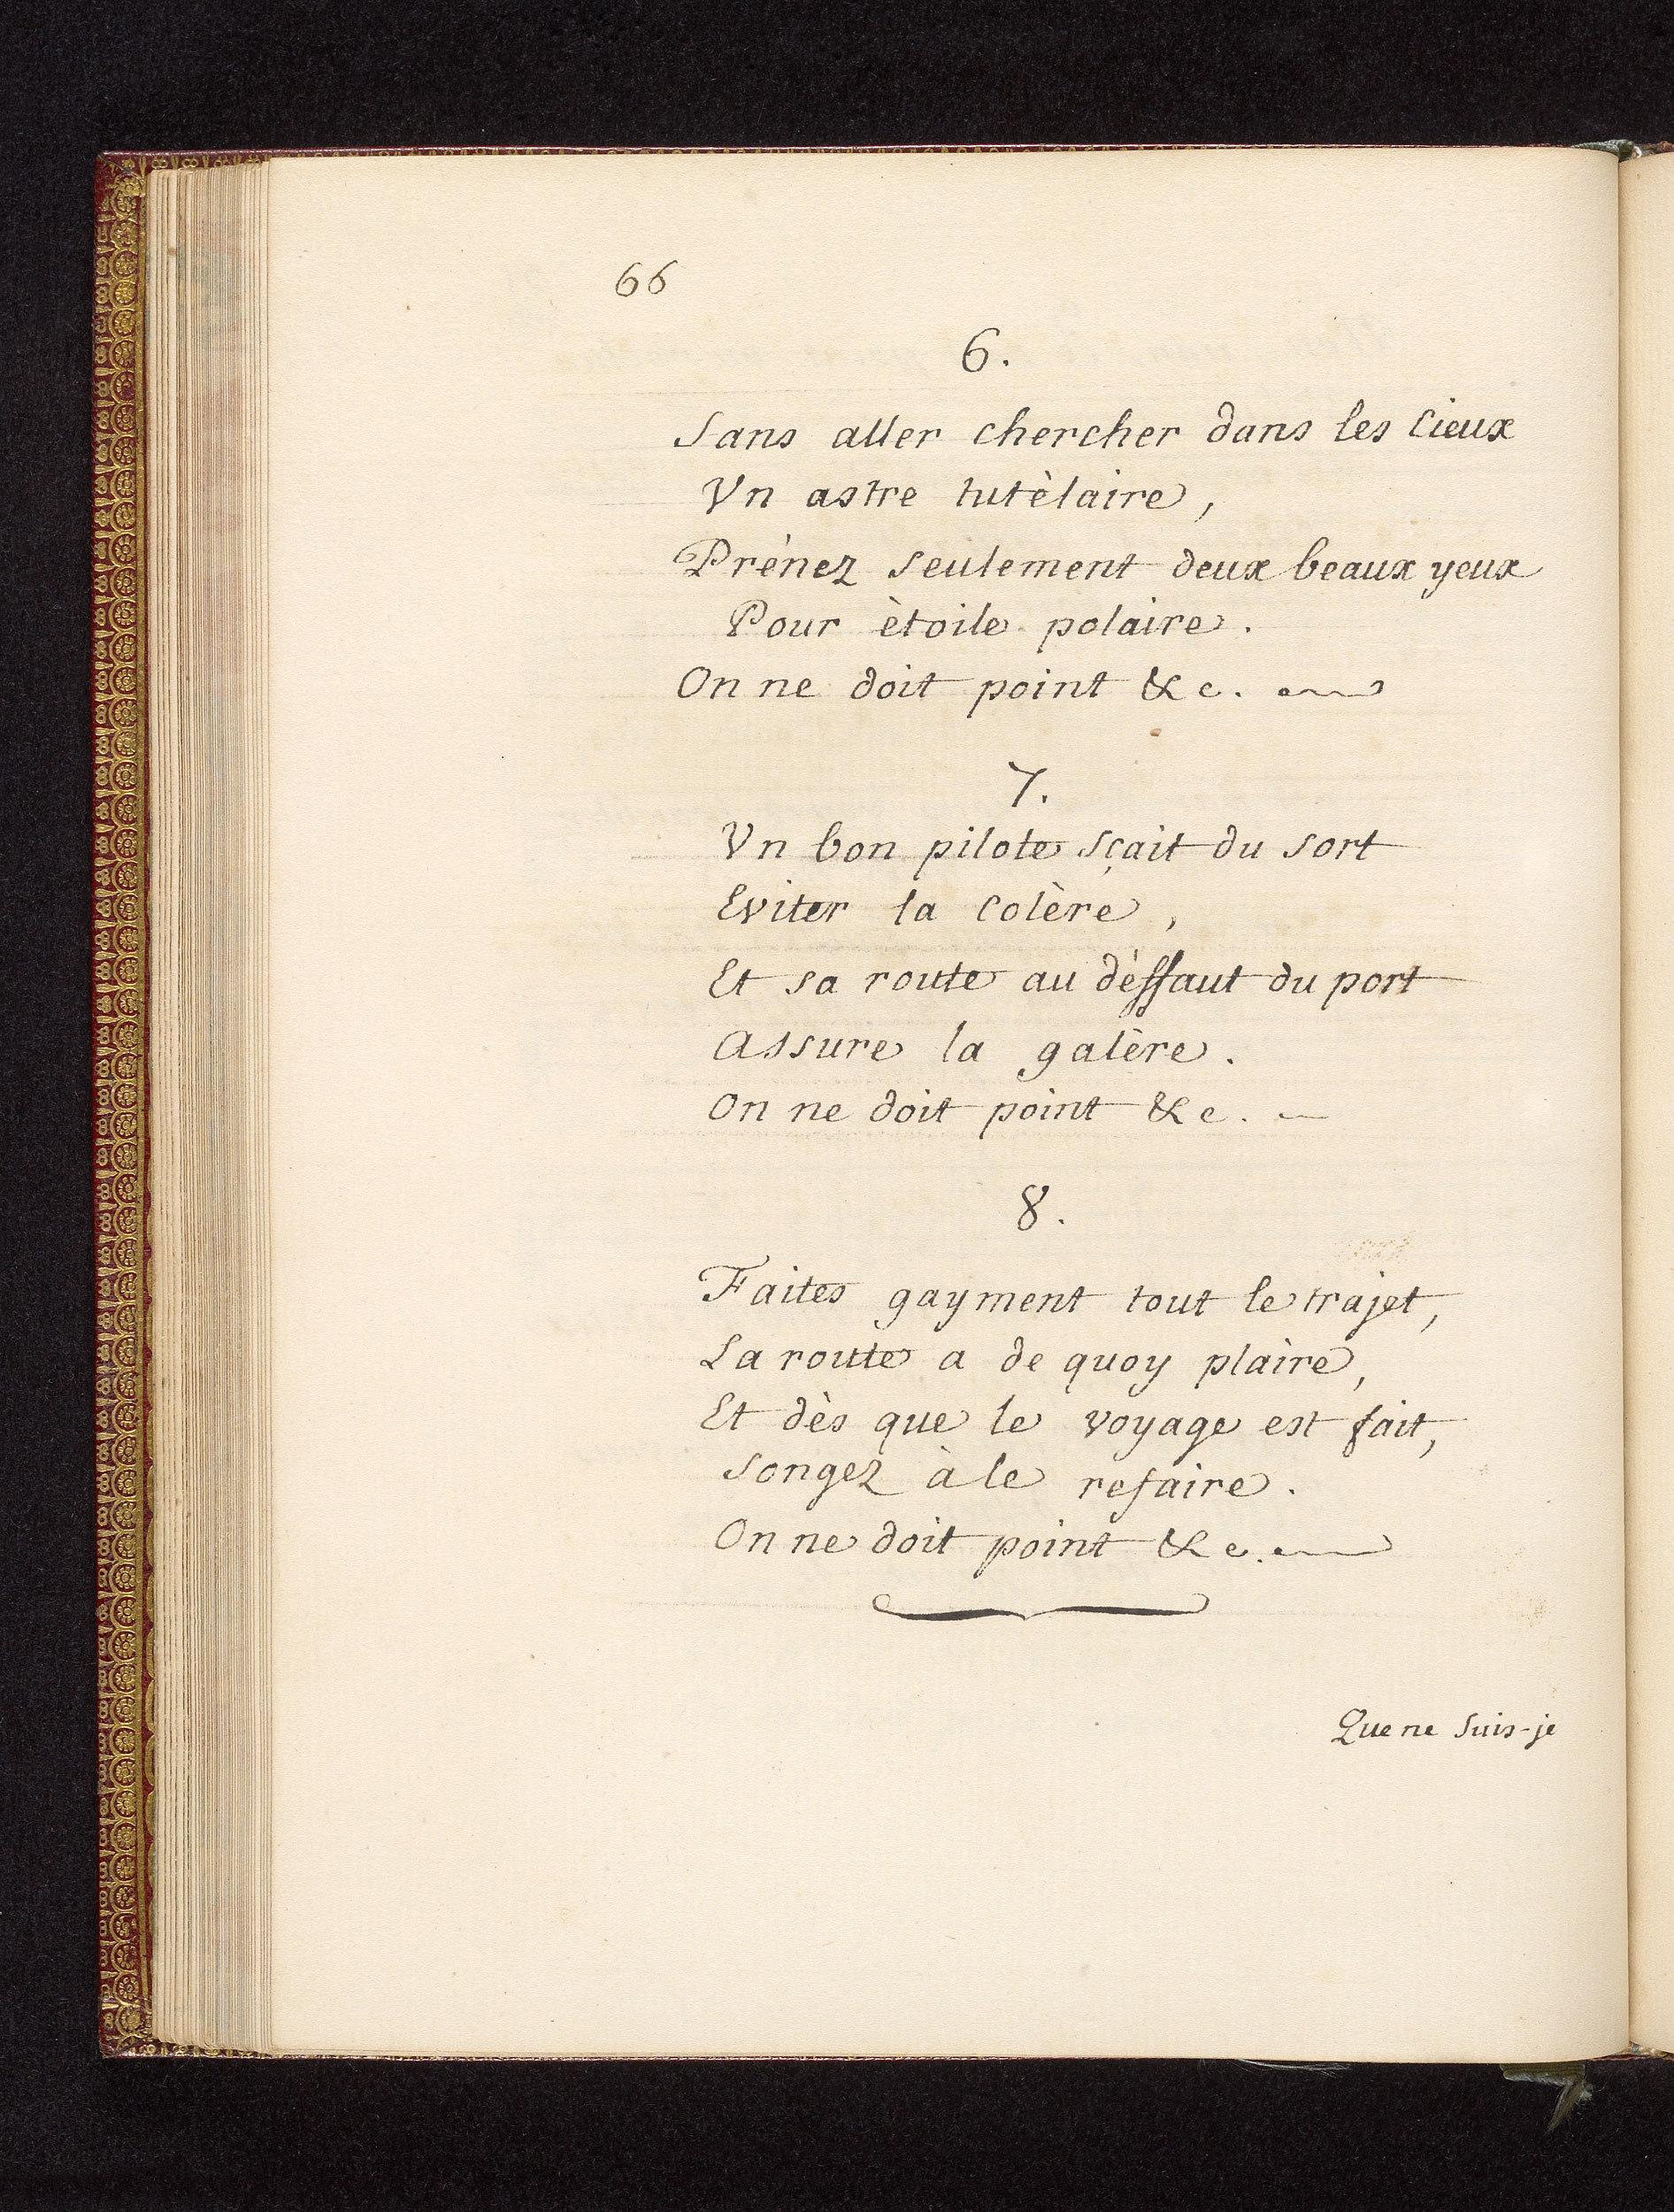 66
6.
Sans aller chercher dans les Cieux
Vn astre tutèlaire,
Prénez seulement deux beaux yeux
Pour ètoile polaire.
On ne doit point &c.
7.
Vn bon pilote sçait du sort
Eviter la Colère,
Et sa route au dèffaut du port
Assure la galère.
On ne doit point &c.
8.
Faites gayment tout le trajet,
La route a de quoy plaire,
Et dès que le voyage est fait,
Songez à le refaire.
On ne doit point &c.
Que ne suis-je